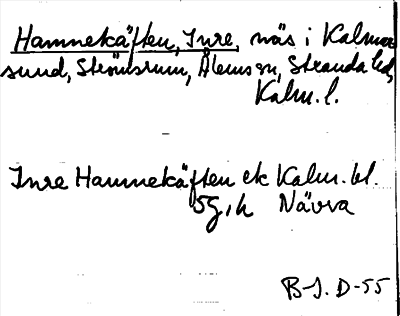 Hamnekäften, Inre, näs i Kalmar
sund, Strömsrum, Ålems sn, Stranda hd,
Kalm. l.
Inre Hamnekäften ek Kalm. bl.
5g, h Nävra
B-J. D-55